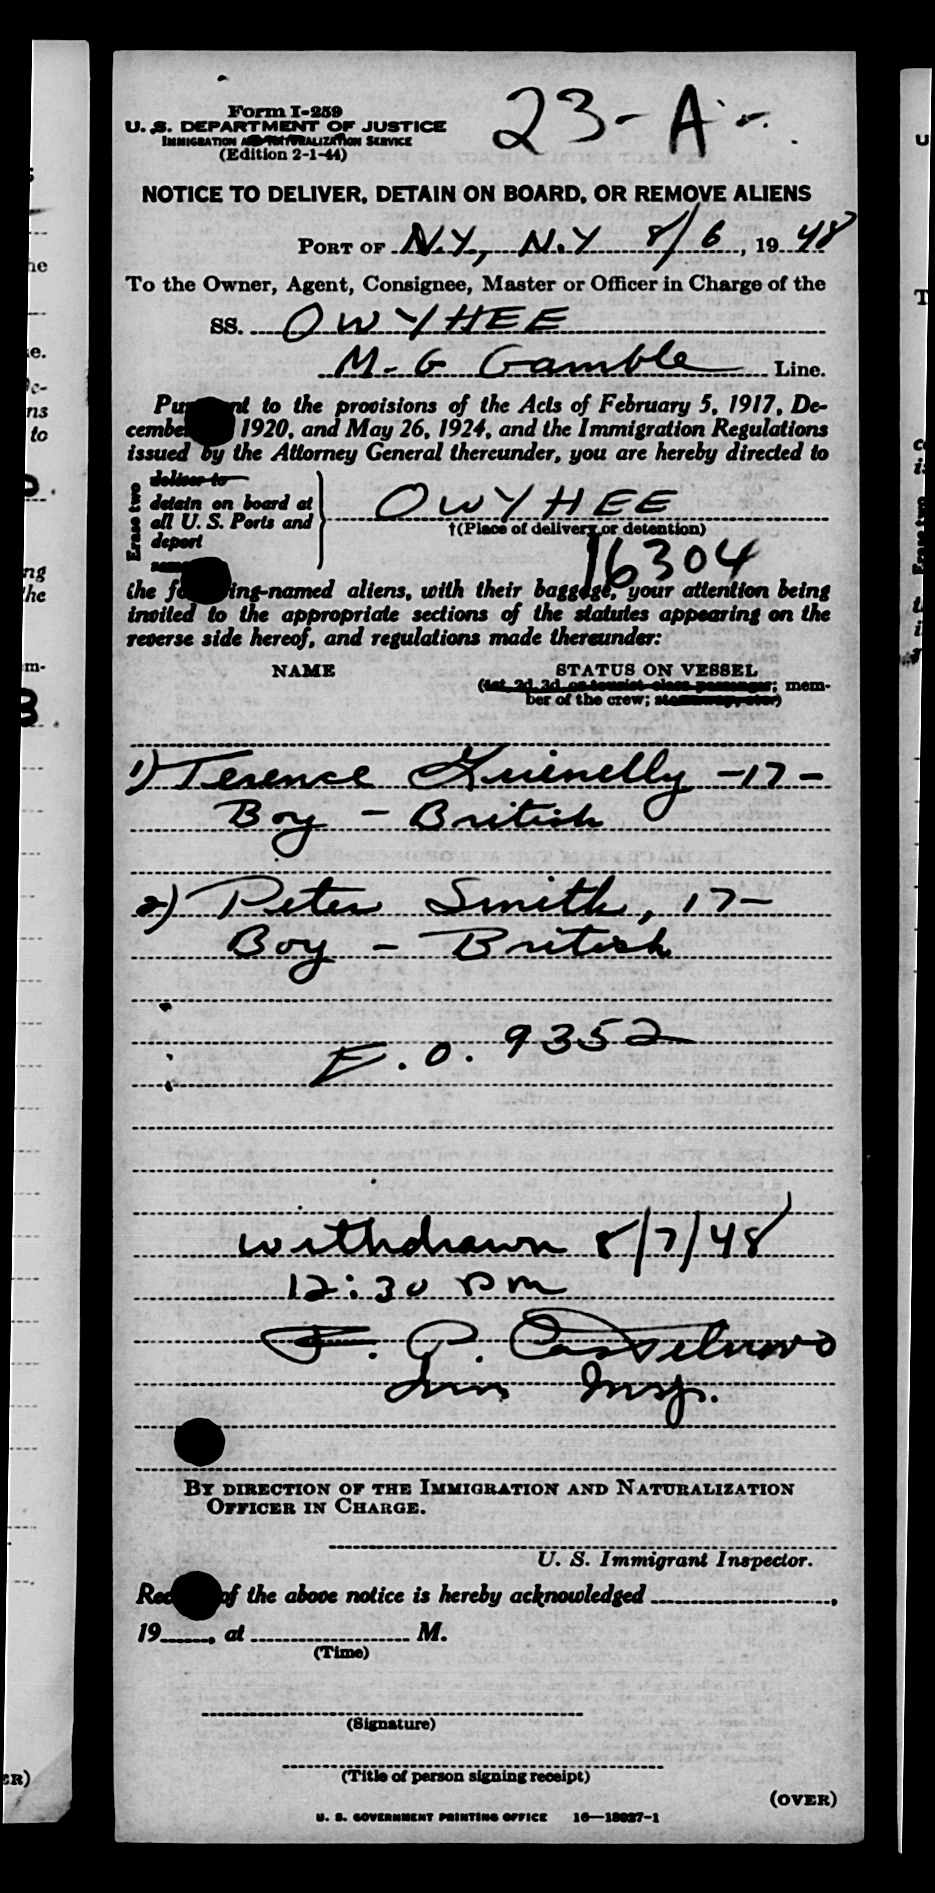 Form I-259
23-A-
U. S. DEPARTMENT OF JUSTICE
IMMIGRATION AND NATURALIZATION SERVICE
(Edition 2-1-44)
NOTICE TO DELIVER, DETAIN ON BOARD, OR REMOVE ALIENS
PORT OF N.Y., N.Y 8/6, 19 48
To the Owner, Agent, Consignee, Master or Officer in Charge of the
SS. OWYHEE
M-G Gamble Line.
Pu nt to the provisions of the Acts of February 5, 1917, De-
cembe 1920, and May 26, 1924, and the Immigration Regulations
issued by the Attorney General thereunder, you are hereby directed to
Erase two
deliver to
detain on board at
all U. S. Ports and
deport
OWYHEE
†(Place of delivery or detention)
16304
the f ing-named aliens, with their baggage, your attention being
invited to the appropriate sections of the statutes appearing on the
reverse side hereof, and regulations made thereunder:
NAME STATUS ON VESSEL
(1st, 2d, 3d, or tourist class passenger; mem-
ber of the crew; stowaway, etc.)
1) Terence -17-
Boy - British
2) Peter Smith, 17-
Boy - British
E.O. 9352
withdrawn 8/7/48
12:30 PM
F. P.
Imm Insp.
BY DIRECTION OF THE IMMIGRATION AND NATURALIZATION
OFFICER IN CHARGE.
U. S. Immigrant Inspector.
Rec of the above notice is hereby acknowledged ,
19 , at M.
(Time)
(Signature)
(Title of person signing receipt)
(OVER)
U. S. GOVERNMENT PRINTING OFFICE 16—18027-1